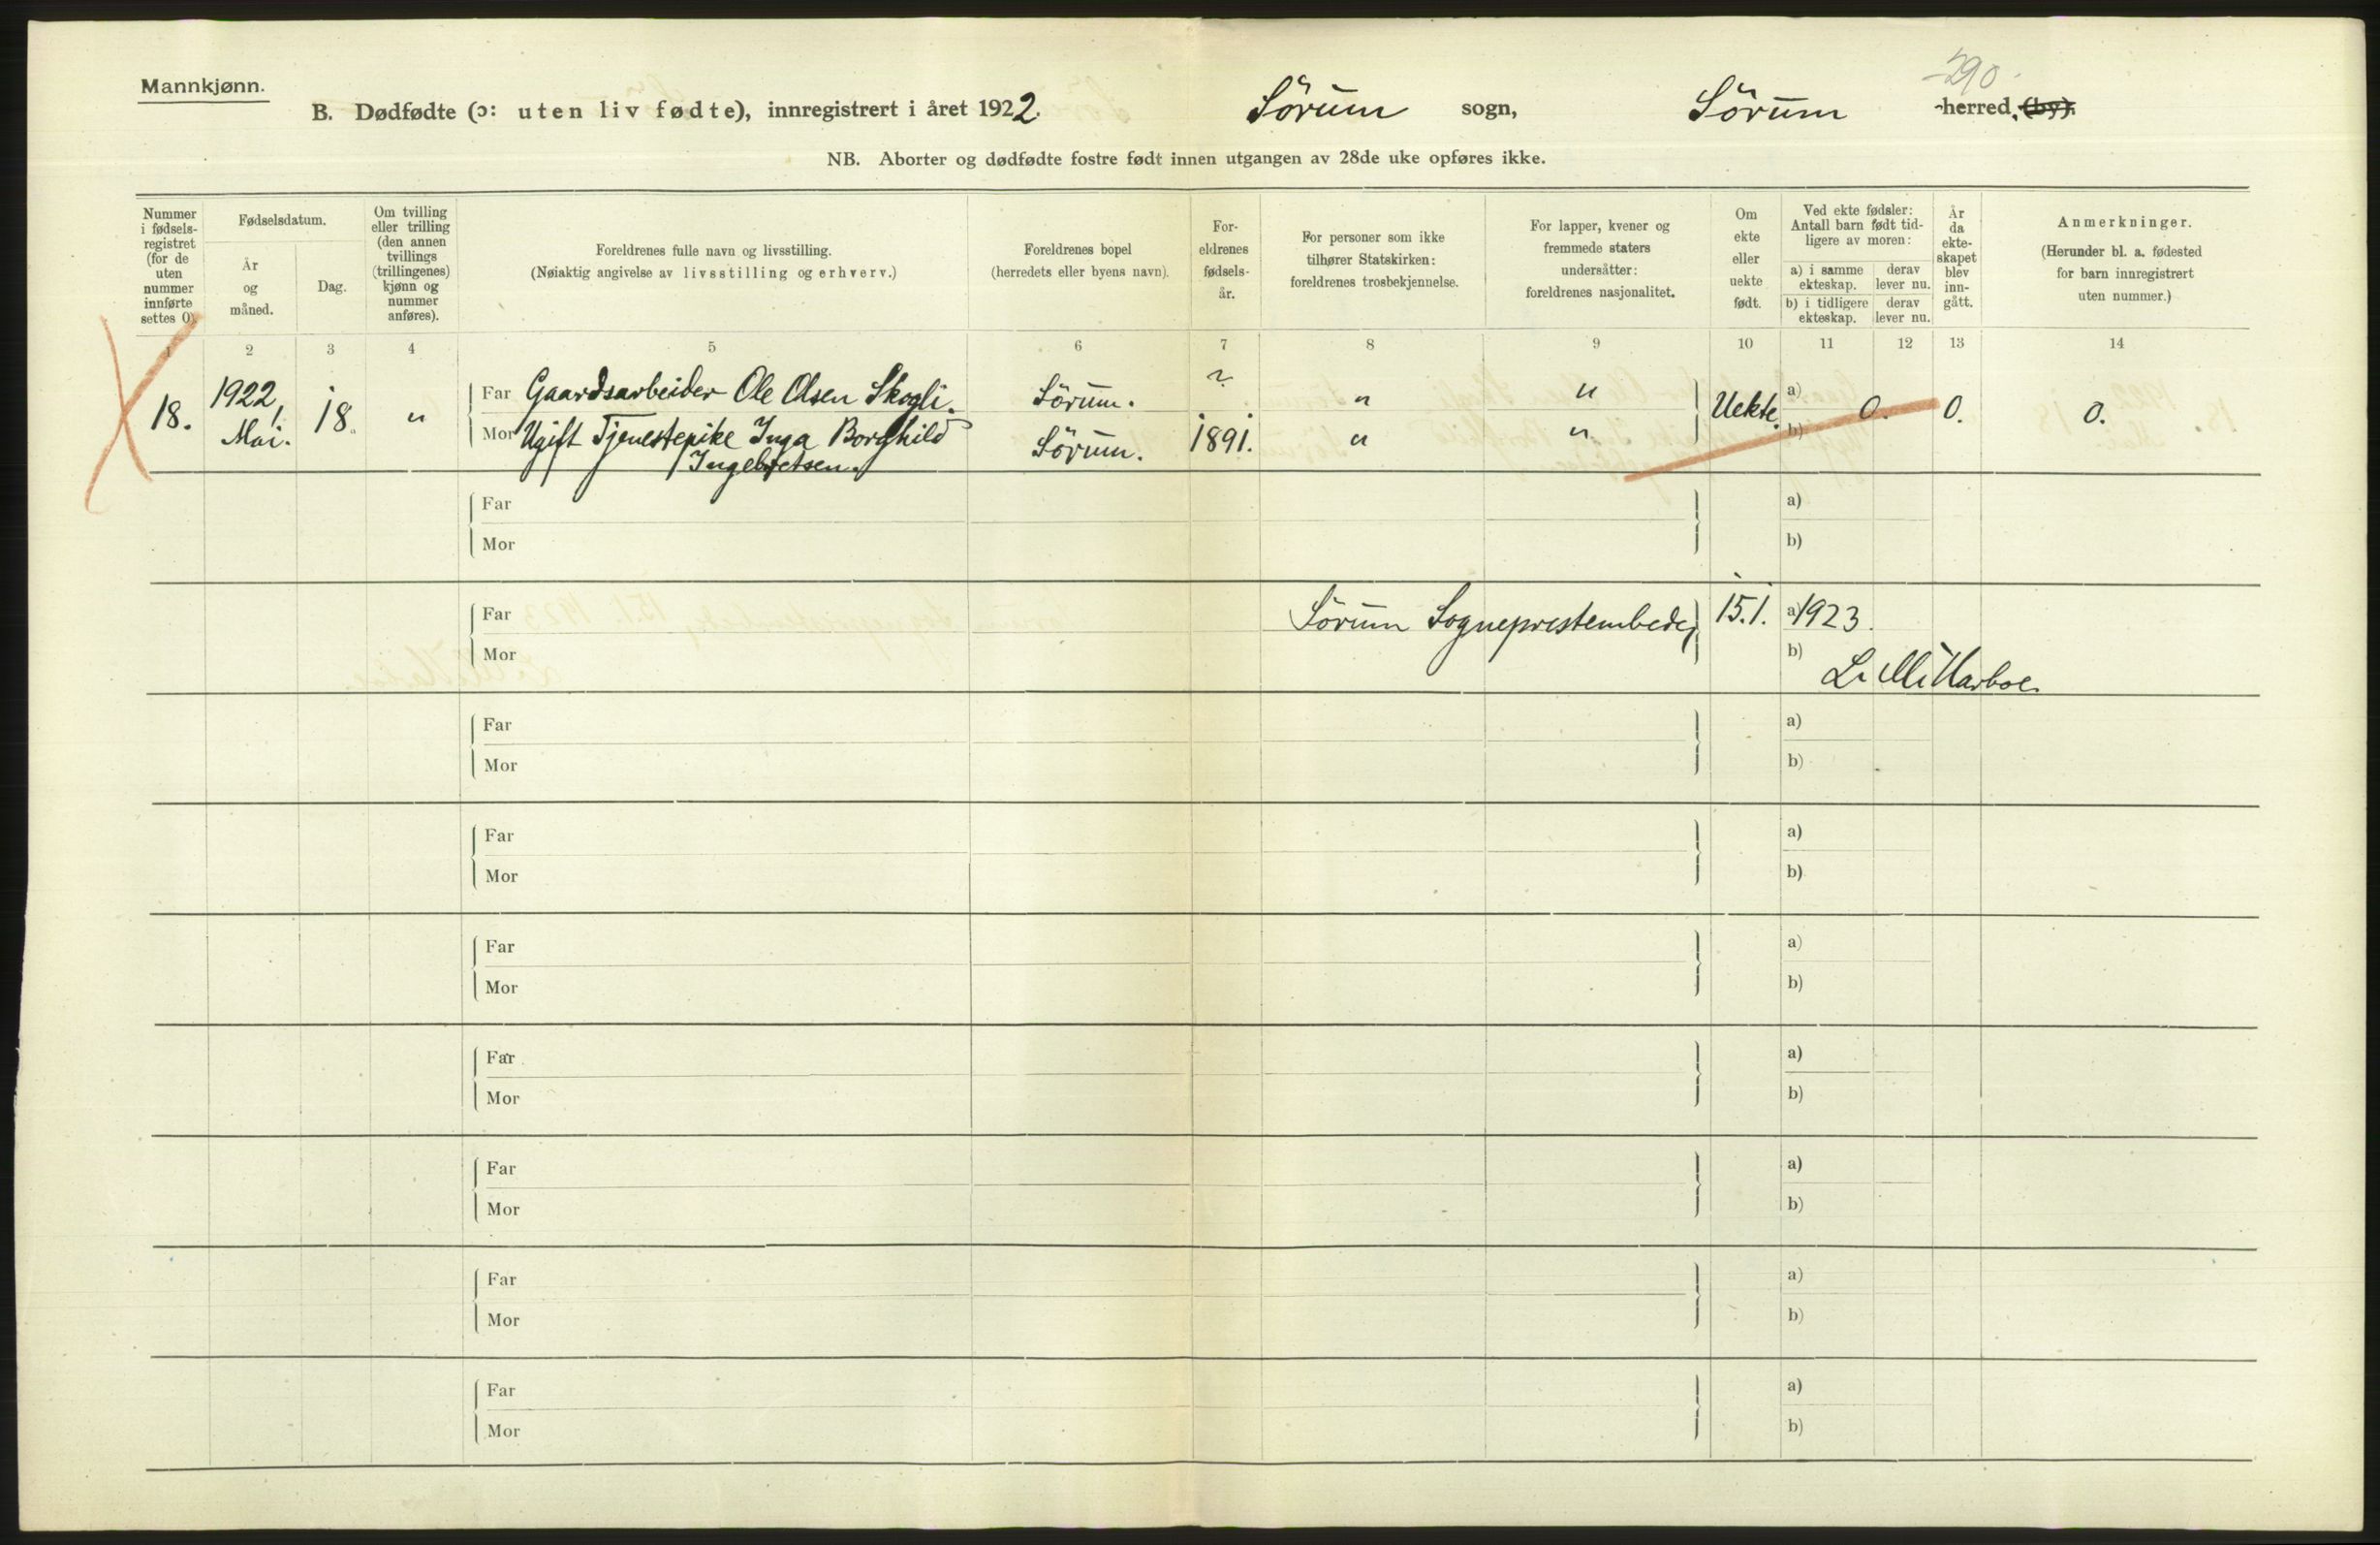 290
Mannkjønn.
B. Dødfødte (ɔ: uten liv fødte), innregistrert i året 1922. Sörum sogn, Sörum -herred, (by).
NB. Aborter og dødfødte fostre født innen utgangen av 28de uke opføres ikke.
Nummer
i fødsels-
registret
(for de
uten
nummer
innførte
settes 0).
Fødselsdatum.
År
og
måned.
Dag.
Om tvilling
eller trilling
(den annen
tvillings
(trillingenes)
kjønn og
nummer
anføres).
Foreldrenes fulle navn og livsstilling.
(Nøiaktig angivelse av livsstilling og erhverv.)
Foreldrenes bopel
(herredets eller byens navn).
For-
eldrenes
fødsels-
år.
For personer som ikke
tilhører Statskirken:
foreldrenes trosbekjennelse.
For lapper, kvener og
fremmede staters
undersåtter:
foreldrenes nasjonalitet.
Om
ekte
eller
uekte
født.
Ved ekte fødsler:
Antall barn født tid-
ligere av moren:
a) i samme
ekteskap.
derav
lever nu.
b) i tidligere
ekteskap.
derav
lever nu.
År
da
ekte-
skapet
blev
inn-
gått.
Anmerkninger.
(Herunder bl. a. fødested
for barn innregistrert
uten nummer.)
1 2 3 4 5 6 7 8 9 10 11 12 13 14
18. 1922, Mai. 18. "
Far Gaardsarbeider Ole Olsen Skogli. Sörum. ? " " Uekte. a) 0. 0. 0.
Mor Ugift Tjenestepike Inga Borghild Sörum. 1891. " " b)
Ingebretsen.
Far a)
Mor b)
Far Sörum Sogneprestembede, 15.1. a) 1923.
Mor b) L. M. Harboe.
Far a)
Mor b)
Far a)
Mor b)
Far a)
Mor b)
Far a)
Mor b)
Far a)
Mor b)
Far a)
Mor b)
Far a)
Mor b)